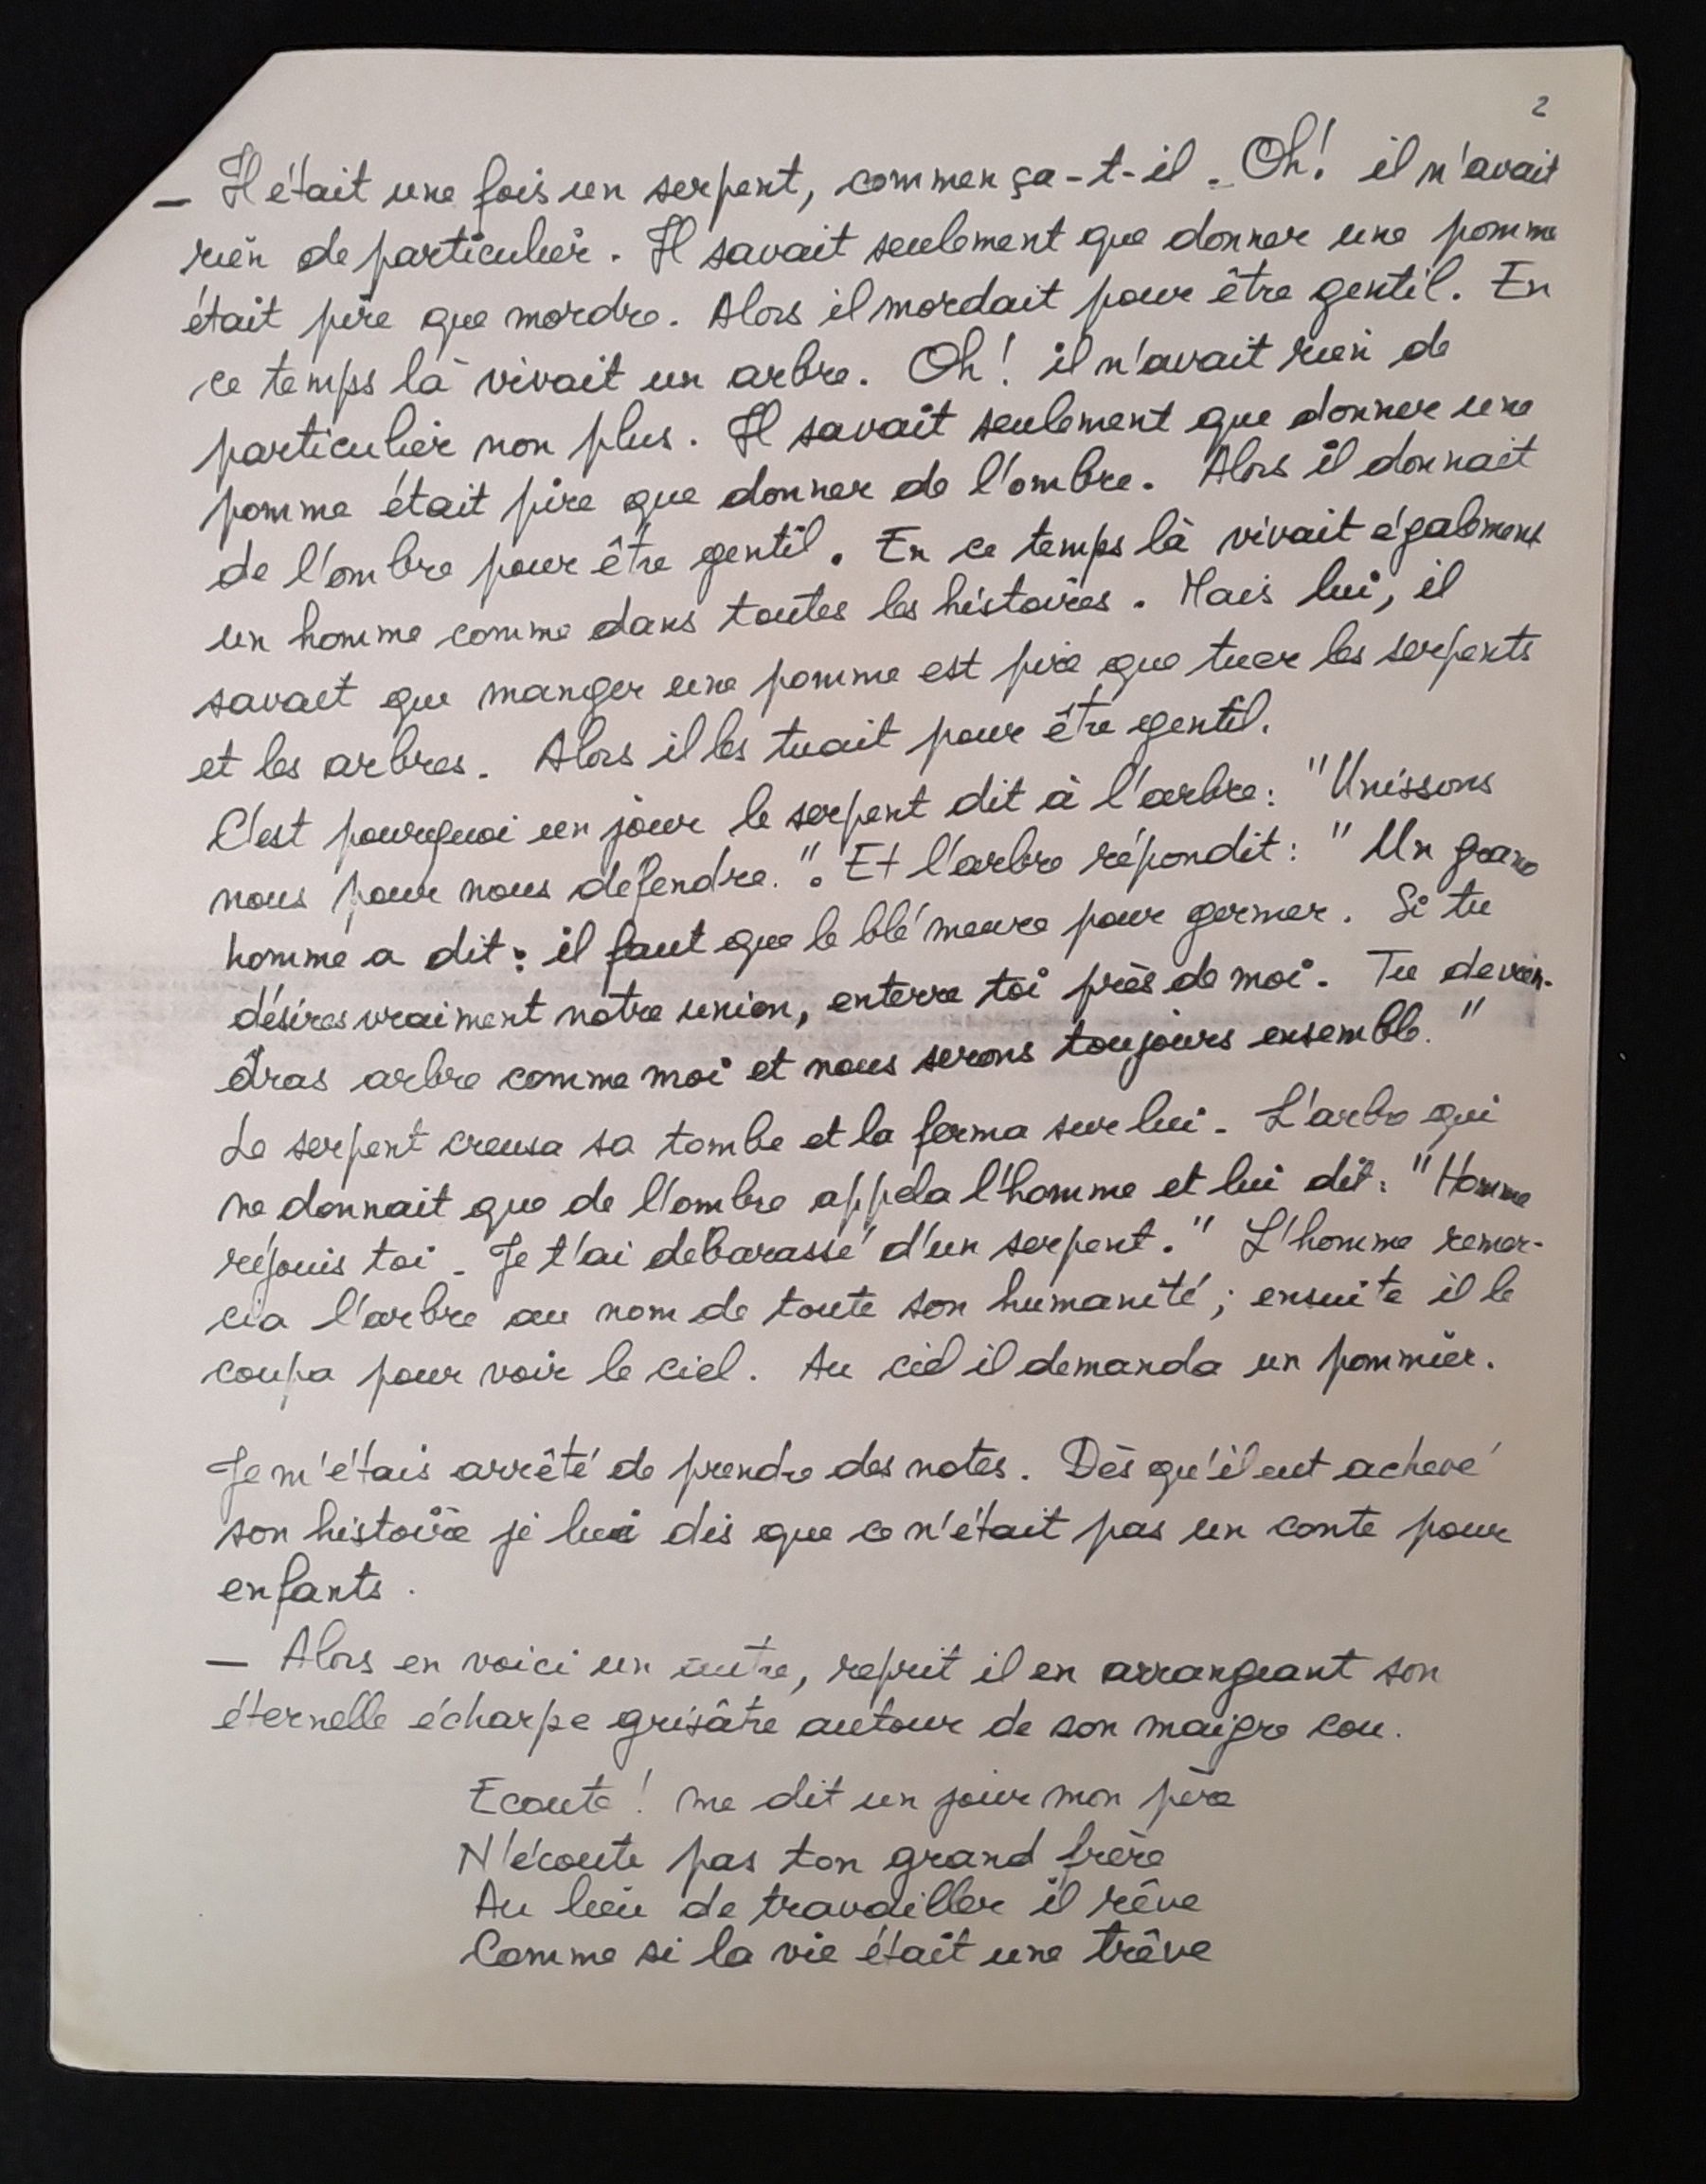 2
— Il était une fois un serpent, commença-t-il. Oh! il n'avait
rien de particulier. Il savait seulement que donner une pomme
était pire que mordre. Alors il mordait pour être gentil. En
ce temps là vivait un arbre. Oh! il n'avait rien de
particulier non plus. Il savait seulement que donner une
pomme était pire que donner de l'ombre. Alors il donnait
de l'ombre pour être gentil. En ce temps là vivait également
un homme comme dans toutes les histoires. Mais lui, il
savait que manger une pomme est pire que tuer les serpents
et les arbres. Alors il les tuait pour être gentil.
C'est pourquoi un jour le serpent dit à l'arbre: "Unissons
nous pour nous défendre.". Et l'arbre répondit: "Un grand
homme a dit: il faut que le blé meure pour germer. Si tu
désires vraiment notre union, enterre toi près de moi. Tu devien-
dras arbre comme moi et nous serons toujours ensemble."
Le serpent creusa sa tombe et la ferma sur lui. L'arbre qui
ne donnait que de l'ombre appela l'homme et lui dit: "Homme
réjouis toi. Je t'ai debarassé d'un serpent." L'homme remer-
cia l'arbre au nom de toute son humanité; ensuite il le
coupa pour voir le ciel. Au ciel il demanda un pommier.
Je m'étais arrêté de prendre des notes. Dès qu'il eut achevé
son histoire je lui dis que ce n'était pas un conte pour
enfants.
— Alors en voici un autre, reprit il en arrangeant son
éternelle écharpe grisâtre autour de son maigre cou.
Ecoute! me dit un jour mon père
N'écoute pas ton grand frère
Au lieu de travailler il rêve
Comme si la vie était une trêve